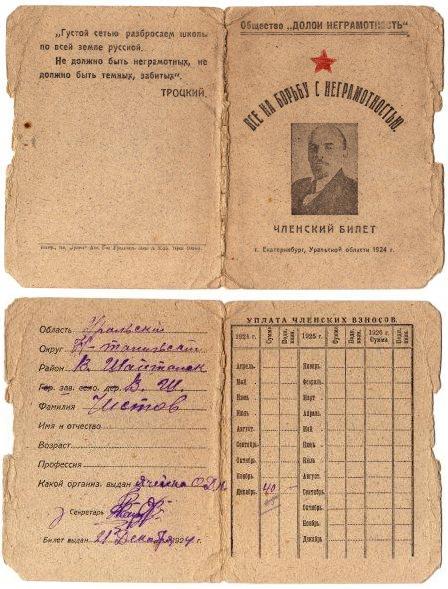 „Густой сетью разбросаем школы
по всей земле русской.
Не должно быть неграмотных, не
должно быть темных, забитых“.
ТРОЦКИЙ.
Общество „ДОЛОЙ НЕГРАМОТНОСТЬ“
ВСЕ НА БОРЬБУ С НЕГРАМОТНОСТЬЮ.
ЧЛЕНСКИЙ БИЛЕТ
г. Екатеринбург, Уральской области 1924 г.
Область Уральскій
Округ
Район В.
Гор. зав. село. дер. В. Ш.
Фамилия Чистов
Имя и отчество
Возраст
Профессия
Какой организ. выдан ячейка О.Д.Н.
Секретарь
Билет выдан 21 Декабря 1924 г.
УПЛАТА ЧЛЕНСКИХ ВЗНОСОВ.
1924 г. Сумма Подп. казн. 1925 г. Сумма Подп. казн. 1926 г. Сумма Подп. казн.
Апрель Январь
Май Февраль
Июнь Март
Июль Апрель
Август Май
Сентябрь Июнь
Октябрь Июль
Ноябрь Август
Декабрь 40 Сентябрь
Октябрь
Ноябрь
Декабрь